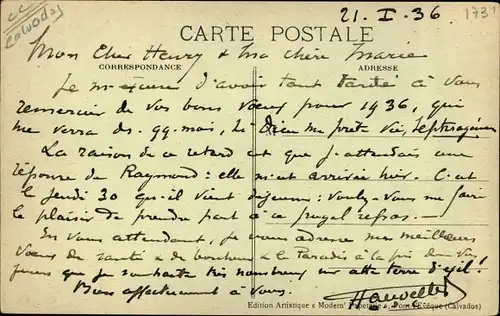 CC
Calvados
21. I. 36
1731
CARTE POSTALE
Mon Cher Henry & Ma chère Marie
CORRESPONDANCE ADRESSE
Je m'excuse d'avoir tant tardé à vous
remercier de vos bons voeux pour 1936, qui
me verra ds. qq. mois, Si Dieu me prête vie, septuagénaire
La raison de ce retard est que j'attendais une
réponse de Raymond: elle m'est arrivée hier. C'est
le jeudi 30 qu'il vient déjeuner: voulez-vous me faire
le plaisir de prendre part à ce frugal repas. —
En vous attendant, je vous adresse mes meilleurs
voeux de santé & de bonheur & le Paradis à la fin de vos
jours que je souhaite très nombreux sur cette terre d'exil!
Bien affectueusement à vous.
Edition Artistique « Modern' Papeterie », Pont-l'Evêque (Calvados)